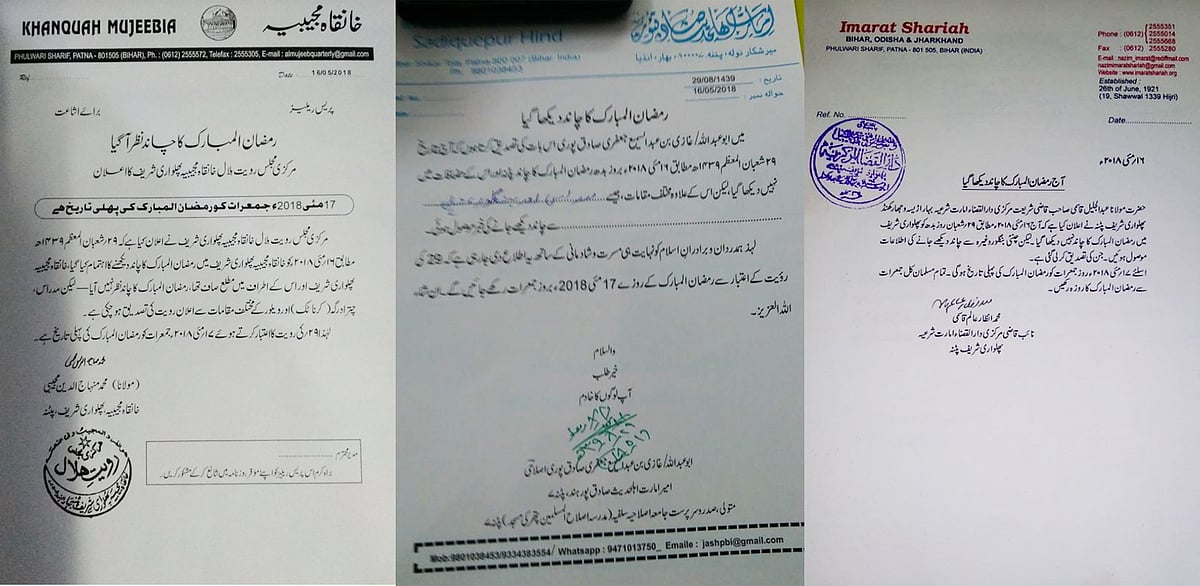 KHANQUAH MUJEEBIA
خانقاہ مجیبیہ
PHULWARI SHARIF, PATNA - 801505 (BIHAR), Ph. : (0612) 2555572, Telefax : 2555305, E-mail : almujeebquarterly@gmail.com
Ref.
Date 16/05/2018
پریس ریلیز
برائے اشاعت
رمضان المبارک کا چاند نظر آ گیا
مرکزی مجلس رویت ہلال خانقاہ مجیبیہ پھلواری شریف کا اعلان
17 مئی 2018ء جمعرات کو رمضان المبارک کی پہلی تاریخ ہے
مرکزی مجلس رویت ہلال خانقاہ مجیبیہ پھلواری شریف نے اعلان کیا ہے کہ ۲۹ شعبان المعظم ۱۴۳۹ھ
مطابق ۱۶ مئی ۲۰۱۸ء کو خانقاہ مجیبیہ پھلواری شریف میں رمضان المبارک کا چاند دیکھنے کا اہتمام کیا گیا، خانقاہ مجیبیہ
پھلواری شریف اور اس کے اطراف میں مطلع صاف تھا، رمضان المبارک کا چاند نظر نہیں آیا۔ لیکن مدراس،
چتر ادرگہ (کرناٹک) اور ویلور کے مختلف مقامات سے اعلان رویت کی تصدیق ہو چکی ہے۔
لہذا ۲۹ رکی رویت کا اعتبار کرتے ہوئے ۱۷ مئی ۲۰۱۸ء جمعرات کو رمضان المبارک کی پہلی تاریخ ہے۔
(مولانا) محمد منہاج الدین مجیبی
خانقاہ مجیبیہ، پھلواری شریف، پٹنہ
رویت ہلال
مدیر محترم
براہ کرم اس پریس ریلیز کو اپنے مؤقر روزنامہ میں شائع کر کے مشکور کریں۔
امارت اہلحدیث صادقپور ہند
میر شکار ٹولہ، پٹنہ ۸۰۰۰۰۷، بہار، انڈیا
Sadiquepur Hind
Shikar Tola, Patna-800 007 (Bihar, India)
Ph. 9801038453
تاریخ: 29/08/1439
حوالہ نمبر: 16/05/2018
رمضان المبارک کا چاند دیکھا گیا
میں ابو عبداللہ / غازی بن عبدالسمیع جعفری صادق پوری اس بات کی تصدیق کرتا ہوں کہ آج بتاریخ
۲۹ شعبان المعظم ۱۴۳۹ھ مطابق ۱۶ مئی ۲۰۱۸ء بروز بدھ رمضان المبارک کا چاند پٹنہ اور اس کے مضافات میں
نہیں دیکھا گیا، لیکن اس کے علاوہ مختلف مقامات، جیسے
سے چاند دیکھے جانے کی خبر موصول ہوئی۔
لہذا ہمدردان و برادران اسلام کو نہایت ہی مسرت و شادمانی کے ساتھ یہ اطلاع دی جا رہی ہے کہ 29 کی
رؤیت کے اعتبار سے رمضان المبارک کے روزے 17 مئی 2018ء بروز جمعرات رکھے جائیں گے۔ ان شاء
اللہ العزیز۔
والسلام
خیر طلب
آپ لوگوں کا خادم
ابو عبداللہ / غازی بن عبدالسمیع جعفری صادق پوری اصلاحی
امیر امارت اہلحدیث صادق پور ہند، پٹنہ ۷
متولی، صدر و سرپرست جامعہ اصلاحیہ سلفیہ (مدرسہ اصلاح المسلمین پتھر کی مسجد) پٹنہ ۷
Mob:9801038453/9334383554/ Whatsapp : 9471013750_ Emaile : jashpbi@gmail.com
Imarat Shariah
BIHAR, ODISHA & JHARKHAND
PHULWARI SHARIF, PATNA - 801 505, BIHAR (INDIA)
Phone : (0612) 2555351
2555014
2555668
Fax : (0612) 2555280
E-mail : nazim_imarat@rediffmail.com
nazimimaratshariah@gmail.com
Website : www.imaratshariah.org
Established :
26th of June, 1921
(19, Shawwal 1339 Hijri)
Ref. No.
Date
۱۶ مئی ۲۰۱۸ء
آج رمضان المبارک کا چاند دیکھا گیا
حضرت مولانا عبدالجلیل قاسمی صاحب قاضی شریعت مرکزی دارالقضاء امارت شرعیہ بہار اڑیسہ و جھارکھنڈ
پھلواری شریف پٹنہ نے اعلان کیا ہے کہ آج ۱۶ مئی ۲۰۱۸ء مطابق ۲۹ شعبان روز بدھ کو پھلواری شریف
میں رمضان المبارک کا چاند نہیں دیکھا گیا۔ لیکن چنئی بنگلور وغیرہ سے چاند دیکھے جانے کی اطلاعات
موصول ہوئیں۔ جن کی تصدیق کر لی گئی ہے۔
اسلئے ۱۷ مئی ۲۰۱۸ء روز جمعرات کو رمضان المبارک کی پہلی تاریخ ہوگی۔ تمام مسلمان کل جمعرات
سے رمضان المبارک کا روزہ رکھیں۔
محمد انظار عالم قاسمی
نائب قاضی مرکزی دارالقضاء امارت شرعیہ
پھلواری شریف پٹنہ